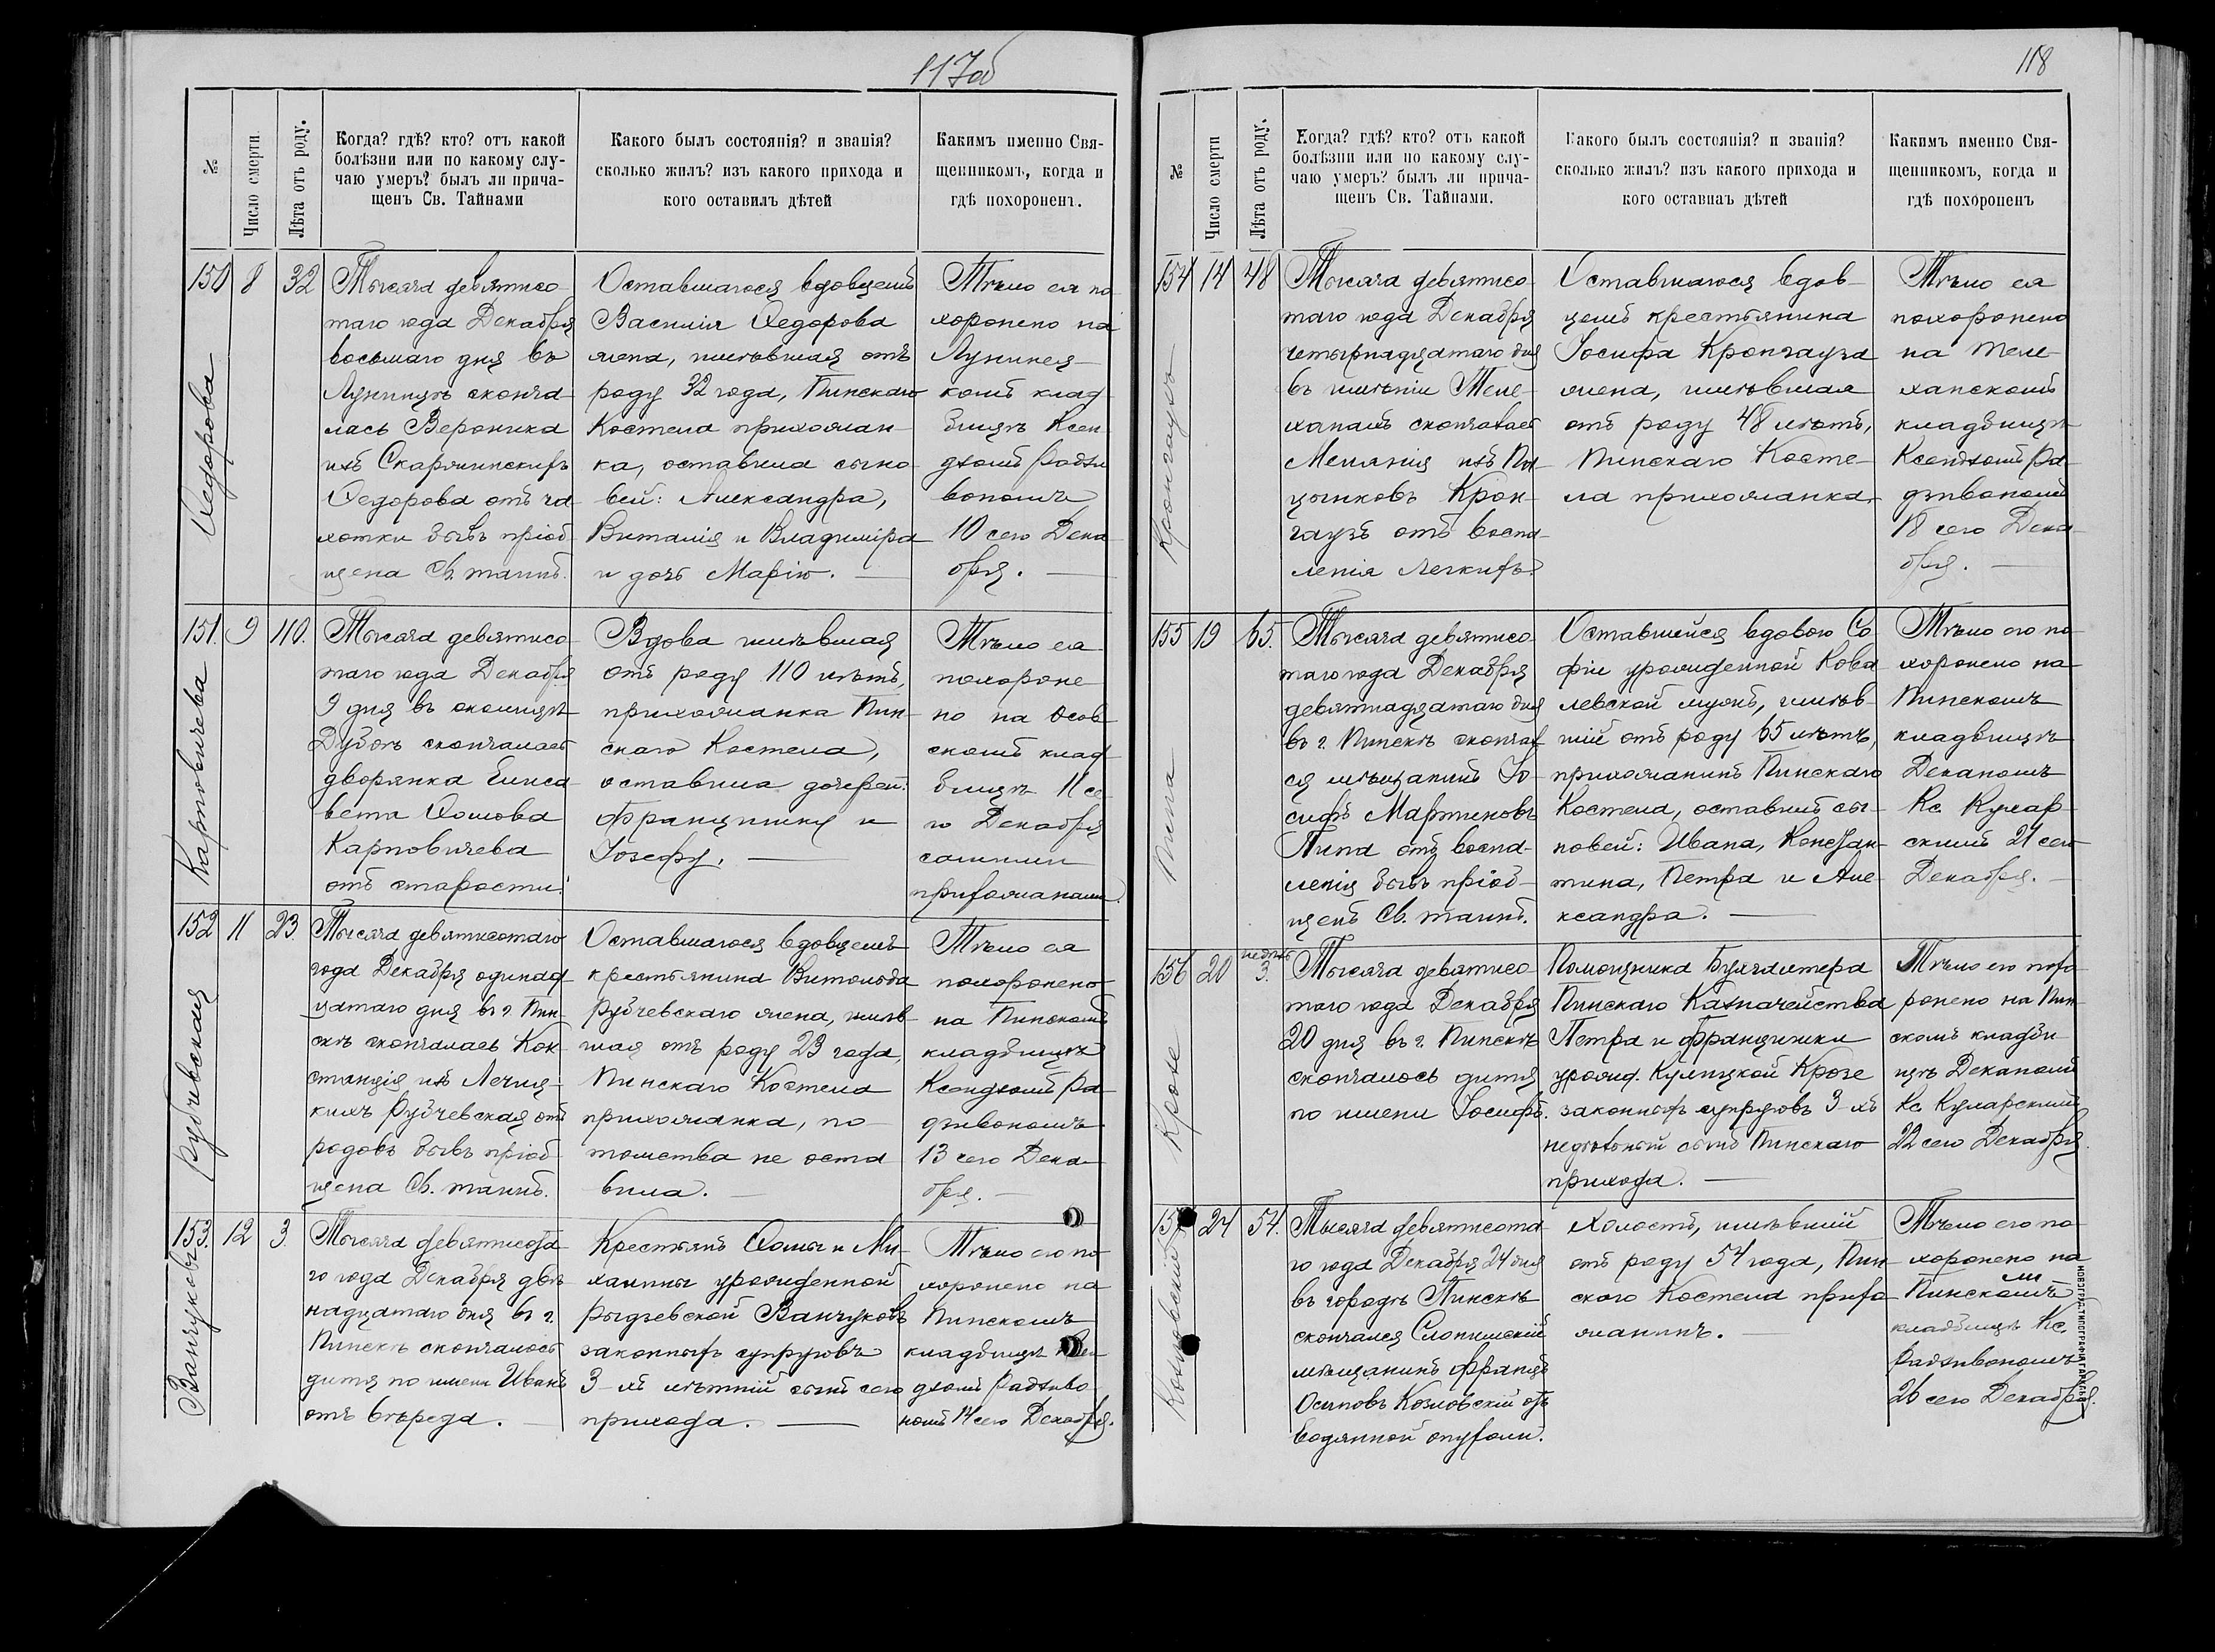 117об
№
Число смерти
Лѣта отъ роду.
Когда? гдѣ? кто? отъ какой
болѣзни или по какому слу-
чаю умеръ? былъ ли прича-
щенъ Св. Тайнами
Какого былъ состоянія? и званія?
сколько жилъ? изъ какого прихода и
кого оставилъ дѣтей
Какимъ именно Свя-
щенникомъ, когда и
гдѣ похороненъ.
150
8
32
Ѳедорова
Тысяча девятисо-
таго года Декабря
восьмаго дня въ
Лунинцѣ сконча-
лась Вероника
изъ Скаржинскихъ
Ѳедорова отъ ча-
хотки бывъ пріоб-
щена Св. таинъ.
Оставшагося вдовцемъ
Василія Ѳедорова
жена, имѣвшая отъ
роду 32 года, Пинскаго
Костела прихожан-
ка, оставила сыно-
вей: Александра,
Виталія и Владиміра
и дочь Марію.
Тѣло ея по-
хоронено на
Лунинец-
комъ клад-
бищѣ Ксен-
дзомъ Радзи-
вономъ
10 сего Дека-
бря.
151.
9
110.
Карповичева
Тысяча девятисо-
таго года Декабря
9 дня въ околицѣ
Дубоѣ скончалась
дворянка Елиса-
вета Ѳомова
Карповичева
отъ старости.
Вдова имѣвшая
отъ роду 110 лѣтъ,
прихожанка Пин-
скаго Костела,
оставила дочерей:
Францишку и
Іозефу.
Тѣло ея
похороне-
но на Осов-
скомъ клад-
бищѣ 11 се-
го Декабря
самими
прихожанами.
152
11
23.
Рубчевская
Тысяча девятисотаго
года Декабря одинад-
цатаго дня въ г. Пин-
скѣ скончалась Кон-
станція изъ Лечиц-
кихъ Рубчевская отъ
родовъ бывъ пріоб-
щена Св. таинъ.
Оставшагося вдовцемъ
крестьянина Витольда
Рубчевскаго жена, имѣв-
шая отъ роду 23 года,
Пинскаго Костела
прихожанка, по-
томства не оста-
вила.
Тѣло ея
похоронено
на Пинскомъ
кладбищѣ
Ксендзомъ Ра-
дзивономъ
13 сего Дека-
бря.
153.
12
3.
Ванчуковъ
Тысяча девятисота-
го года Декабря двѣ-
надцатаго дня въ г.
Пинскѣ скончалось
дитя по имени Иванъ
отъ вереда.
Крестьянъ Ѳомы и Ми-
халины урожденной
Рыдзевской Ванчуковъ
законныхъ супруговъ
3-хъ лѣтній сынъ сего
прихода.
Тѣло его по-
хоронено на
Пинскомъ
кладбищѣ Ксен-
дзомъ Радзиво-
номъ 14 сего Декабря.
118
№
Число смерти
Лѣта отъ роду.
Когда? гдѣ? кто? отъ какой
болѣзни или по какому слу-
чаю умеръ? былъ ли прича-
щенъ Св. Тайнами.
Какого былъ состоянія? и званія?
сколько жилъ? изъ какого прихода и
кого оставилъ дѣтей
Какимъ именно Свя-
щенникомъ, когда и
гдѣ похороненъ
154
14
48
Кронгаузъ
Тысяча девятисо-
таго года Декабря
четырнадцатаго дня
въ имѣніи Теле-
ханахъ скончалась
Меланія изъ
Крон-
гаузъ отъ воспа-
ленія легкихъ.
Оставшагося вдов-
цемъ крестьянина
Іосифа Кронгауза
жена, имѣвшая
отъ роду 48 лѣтъ,
Пинскаго Косте-
ла прихожанка.
Тѣло ея
похоронено
на Теле-
ханскомъ
кладбищѣ
Ксендзомъ Ра-
дзивономъ
18 сего Дека-
бря.
155
19
65.
Липа
Тысяча девятисо-
таго года Декабря
девятнадцатаго дня
въ г. Пинскѣ скончал-
ся мѣщанинъ Іо-
сифъ Мартиновъ
Липа отъ воспа-
ленія бывъ пріоб-
щенъ Св. таинъ.
Оставшейся вдовою Со-
фіи урожденной Кова-
левской мужъ, имѣв-
шій отъ роду 65 лѣтъ,
прихожанинъ Пинскаго
Костела, оставилъ сы-
новей: Ивана, Констан-
тина, Петра и Але-
ксандра.
Тѣло его по-
хоронено на
Пинскомъ
кладбищѣ
Деканомъ
Кс. Кулар-
скимъ 21 сего
Декабря.
156
20
недѣль
3.
Крозе
Тысяча девятисо-
таго года Декабря
20 дня въ г. Пинскѣ
скончалось дитя
по имени Іосифъ.
Помощника Бухгалтера
Пинскаго Казначейства
Петра и Францишки
урожд. Крозе
законныхъ супруговъ 3-хъ
недѣльный сынъ Пинскаго
прихода.
Тѣло его похо-
ронено на Пин-
скомъ кладби-
щѣ Деканомъ
Кс. Куларскимъ
22 сего Декабря.
157
24
54.
Козловскій
Тысяча девятисота-
го года Декабря 24 дня
въ городѣ Пинскѣ
скончался Слонимскій
мѣщанинъ Францъ
Осиповъ Козловскій отъ
водянной опухоли.
Холостъ, имѣвшій
отъ роду 54 года, Пин-
скаго Костела прихо-
жанинъ.
Тѣло его по-
хоронено на
Пинскомъ
кладбищѣ Кс.
Радзивономъ
26 сего Декабря.